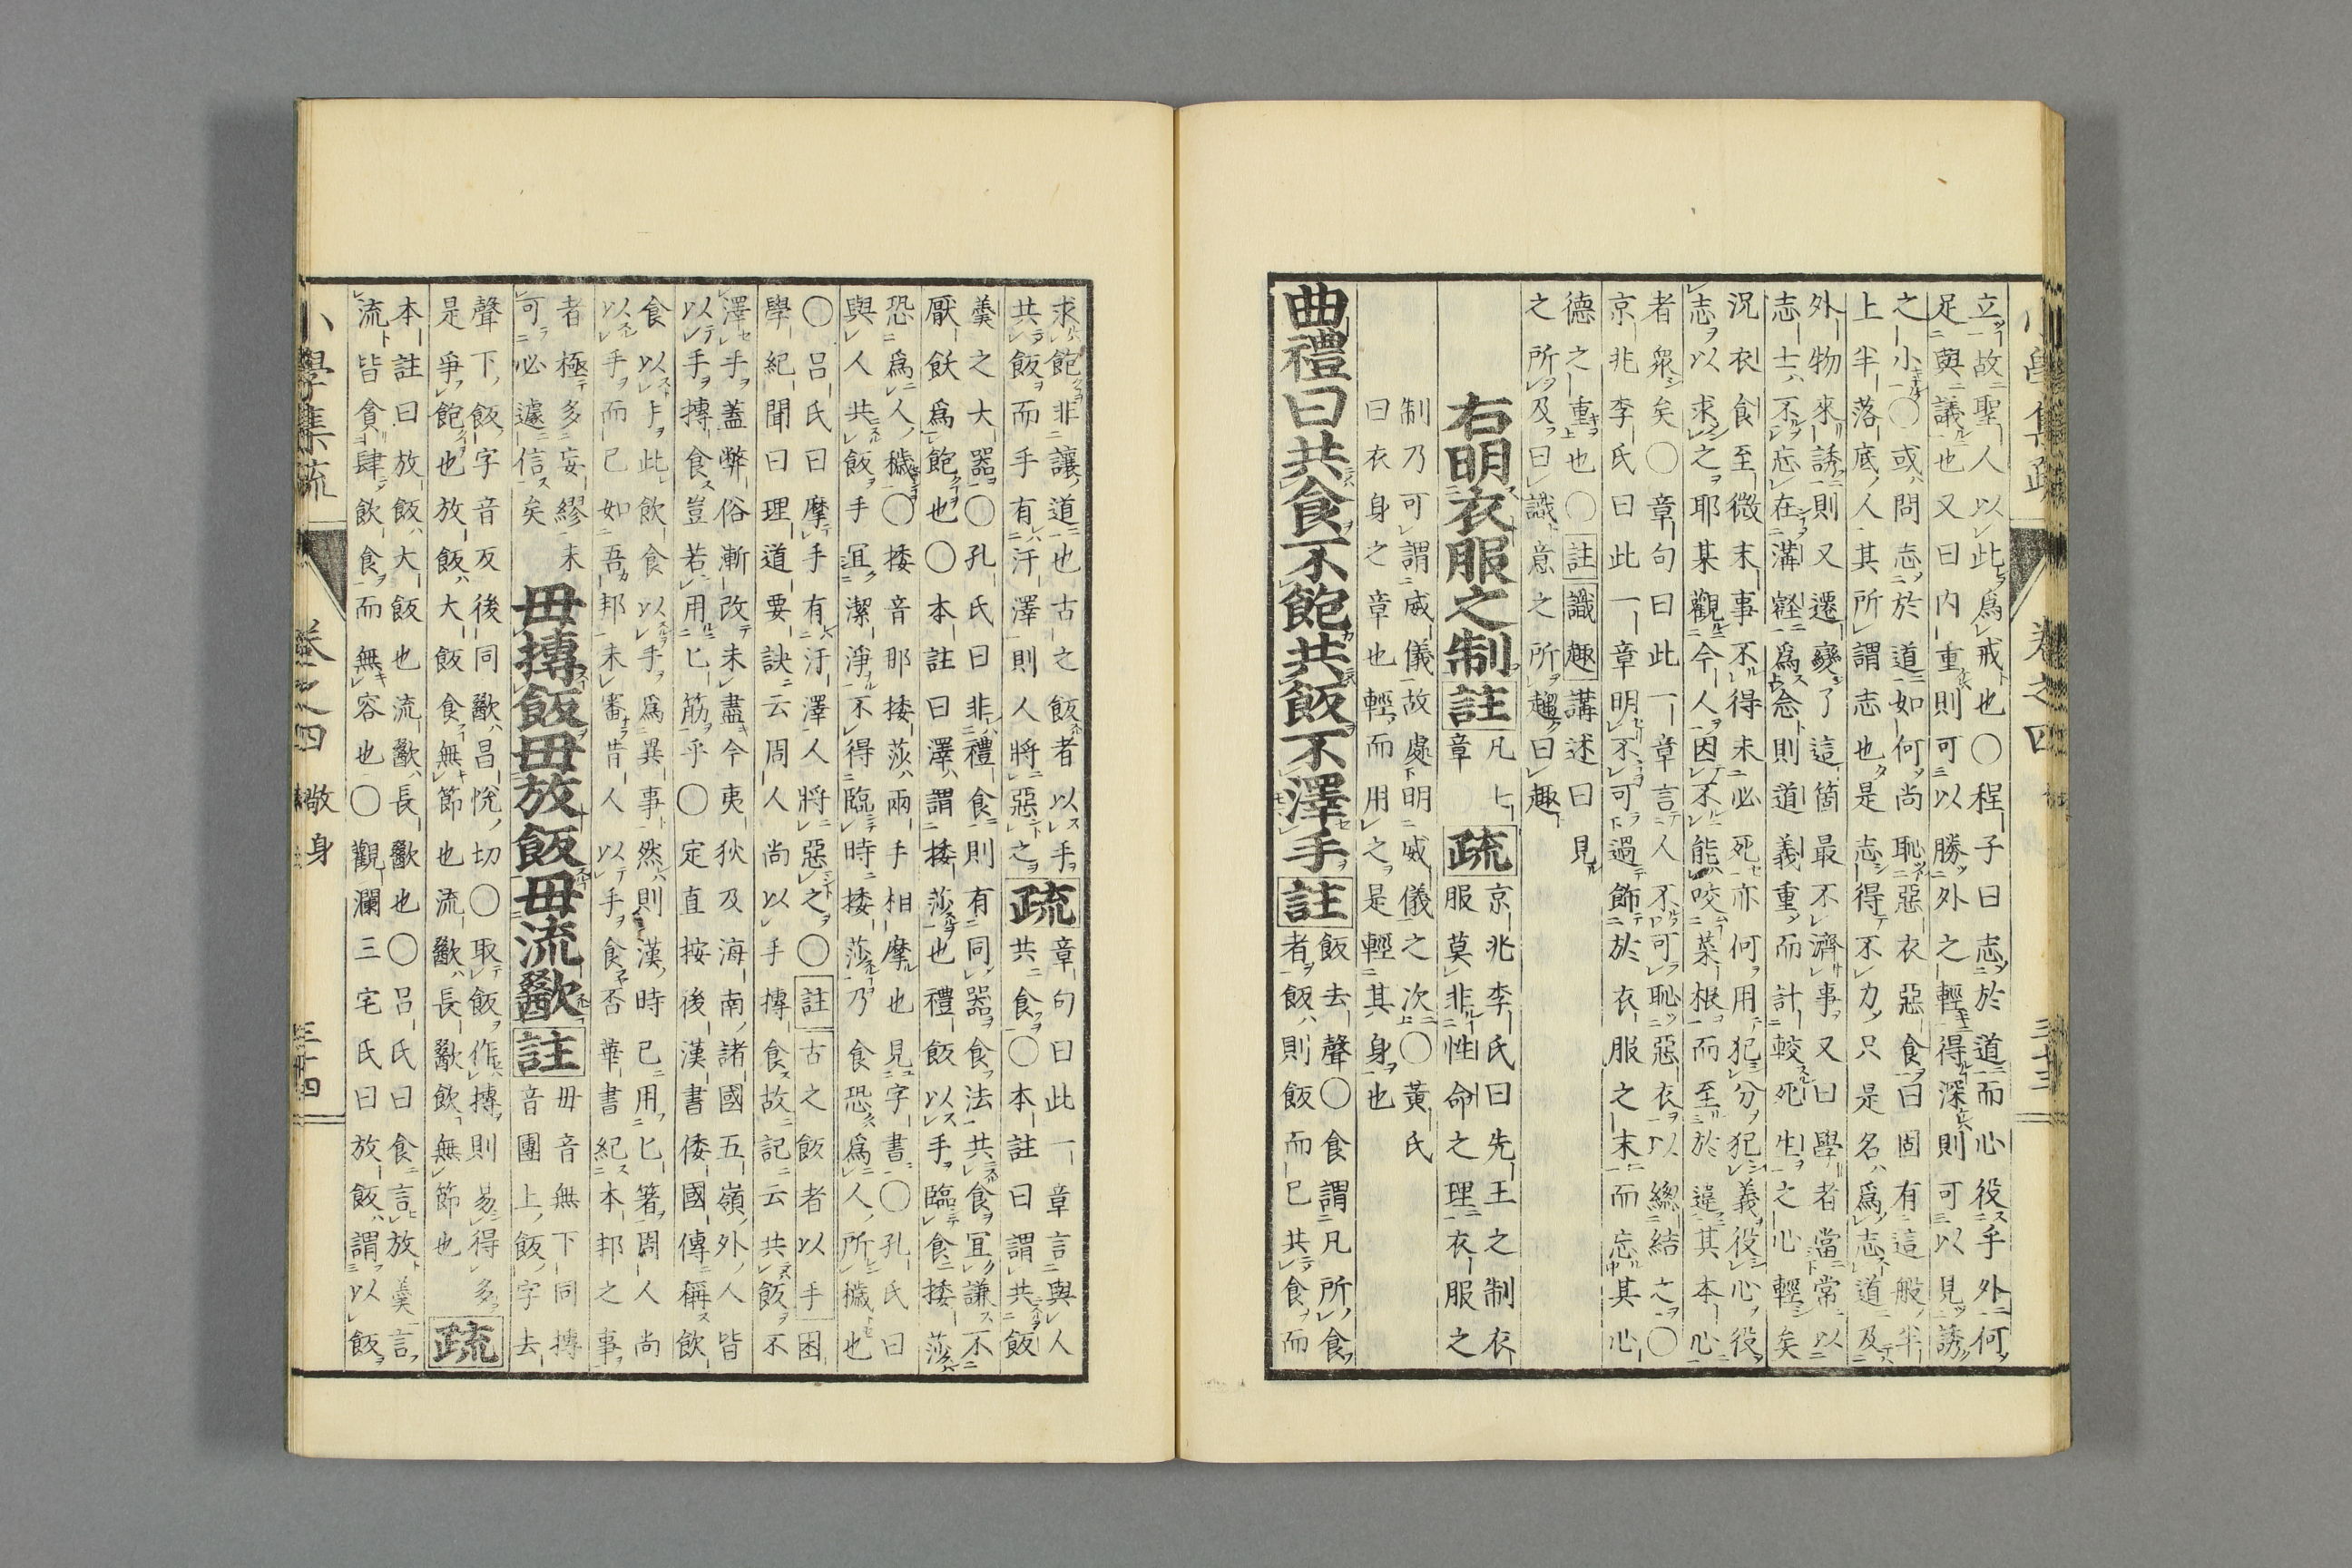 小學集疏 卷之四 三十三
立故聖人以此爲戒也〇程子曰志於道而心役乎外何
足與議也又曰内重則可以勝外之輕得深則可以見誘
之小〇或問志於道如何尚恥惡衣惡食曰固有這般半
上半落底人其所謂志也是志得不力只是名爲志道及
外物來誘則又遷變了這箇最不濟事又曰學者當常以
志士不忘在溝壑爲念則道義重而計較死生之心輕矣
況衣食至微末事不得未必死亦何用犯分犯義役心役
志以求之耶某觀今人因不能咬菜根而至於違其本心
者衆矣〇章句曰此一章言人不可恥惡衣以總結之〇
京兆李氏曰此一章明不可過飾於衣服之末而忘其心
德之重也〇註識趣講述曰見
之所及曰識意之所趨曰趣
右明衣服之制 註 凡七
章 疏 京兆李氏曰先王之制衣
服莫非性命之理衣服之
制乃可謂威儀故處明威儀之次〇黃氏
曰衣身之章也輕而用之是輕其身也
曲禮曰共食不飽共飯不澤手 註 飯去聲〇食謂凡所食
者飯則飯而已共食而
求飽非讓道也古之飯者以手
共飯而手有汗澤則人將惡之 疏 章句曰此一章言與人
共食〇本註曰謂共飯
羹之大器〇孔氏曰非禮食則有同器食法共食宜謙不
厭飫爲飽也〇本註曰澤謂捼莎也禮飯以手臨食捼莎
恐爲人穢〇捼音那捼莎兩手相摩也見字書〇孔氏曰
與人共飯手宜潔淨不得臨時捼莎乃食恐爲人所穢也
〇呂氏曰摩手有汙澤人將惡之〇註古之飯者以手困
學紀聞曰理道要訣云周人尚以手摶食故記云共飯不
澤手蓋弊俗漸改未盡今夷狄及海南諸國五嶺外人皆
以手摶食豈若用匕筯乎〇定直按後漢書倭國傳稱飲
食以手此飲食以手爲異事然則漢時已用匕箸周人尚
以手而已如吾邦未審昔人以手食否華書紀本邦之事
者極多妄繆未
可必遽信矣
毋摶飯毋放飯毋流歠 註 毋音無下同摶
音團上飯字去
聲下飯字音反後同歠昌悅切〇取飯作摶則易得多
是爭飽也放飯大飯食無節也流歠長歠飲無節也 疏
本註曰放飯大飯也流歠長歠也〇呂氏曰食言放羹言
流皆貪肆飲食而無容也〇觀瀾三宅氏曰放飯謂以飯
小學集疏 卷之四 敬身 三十四